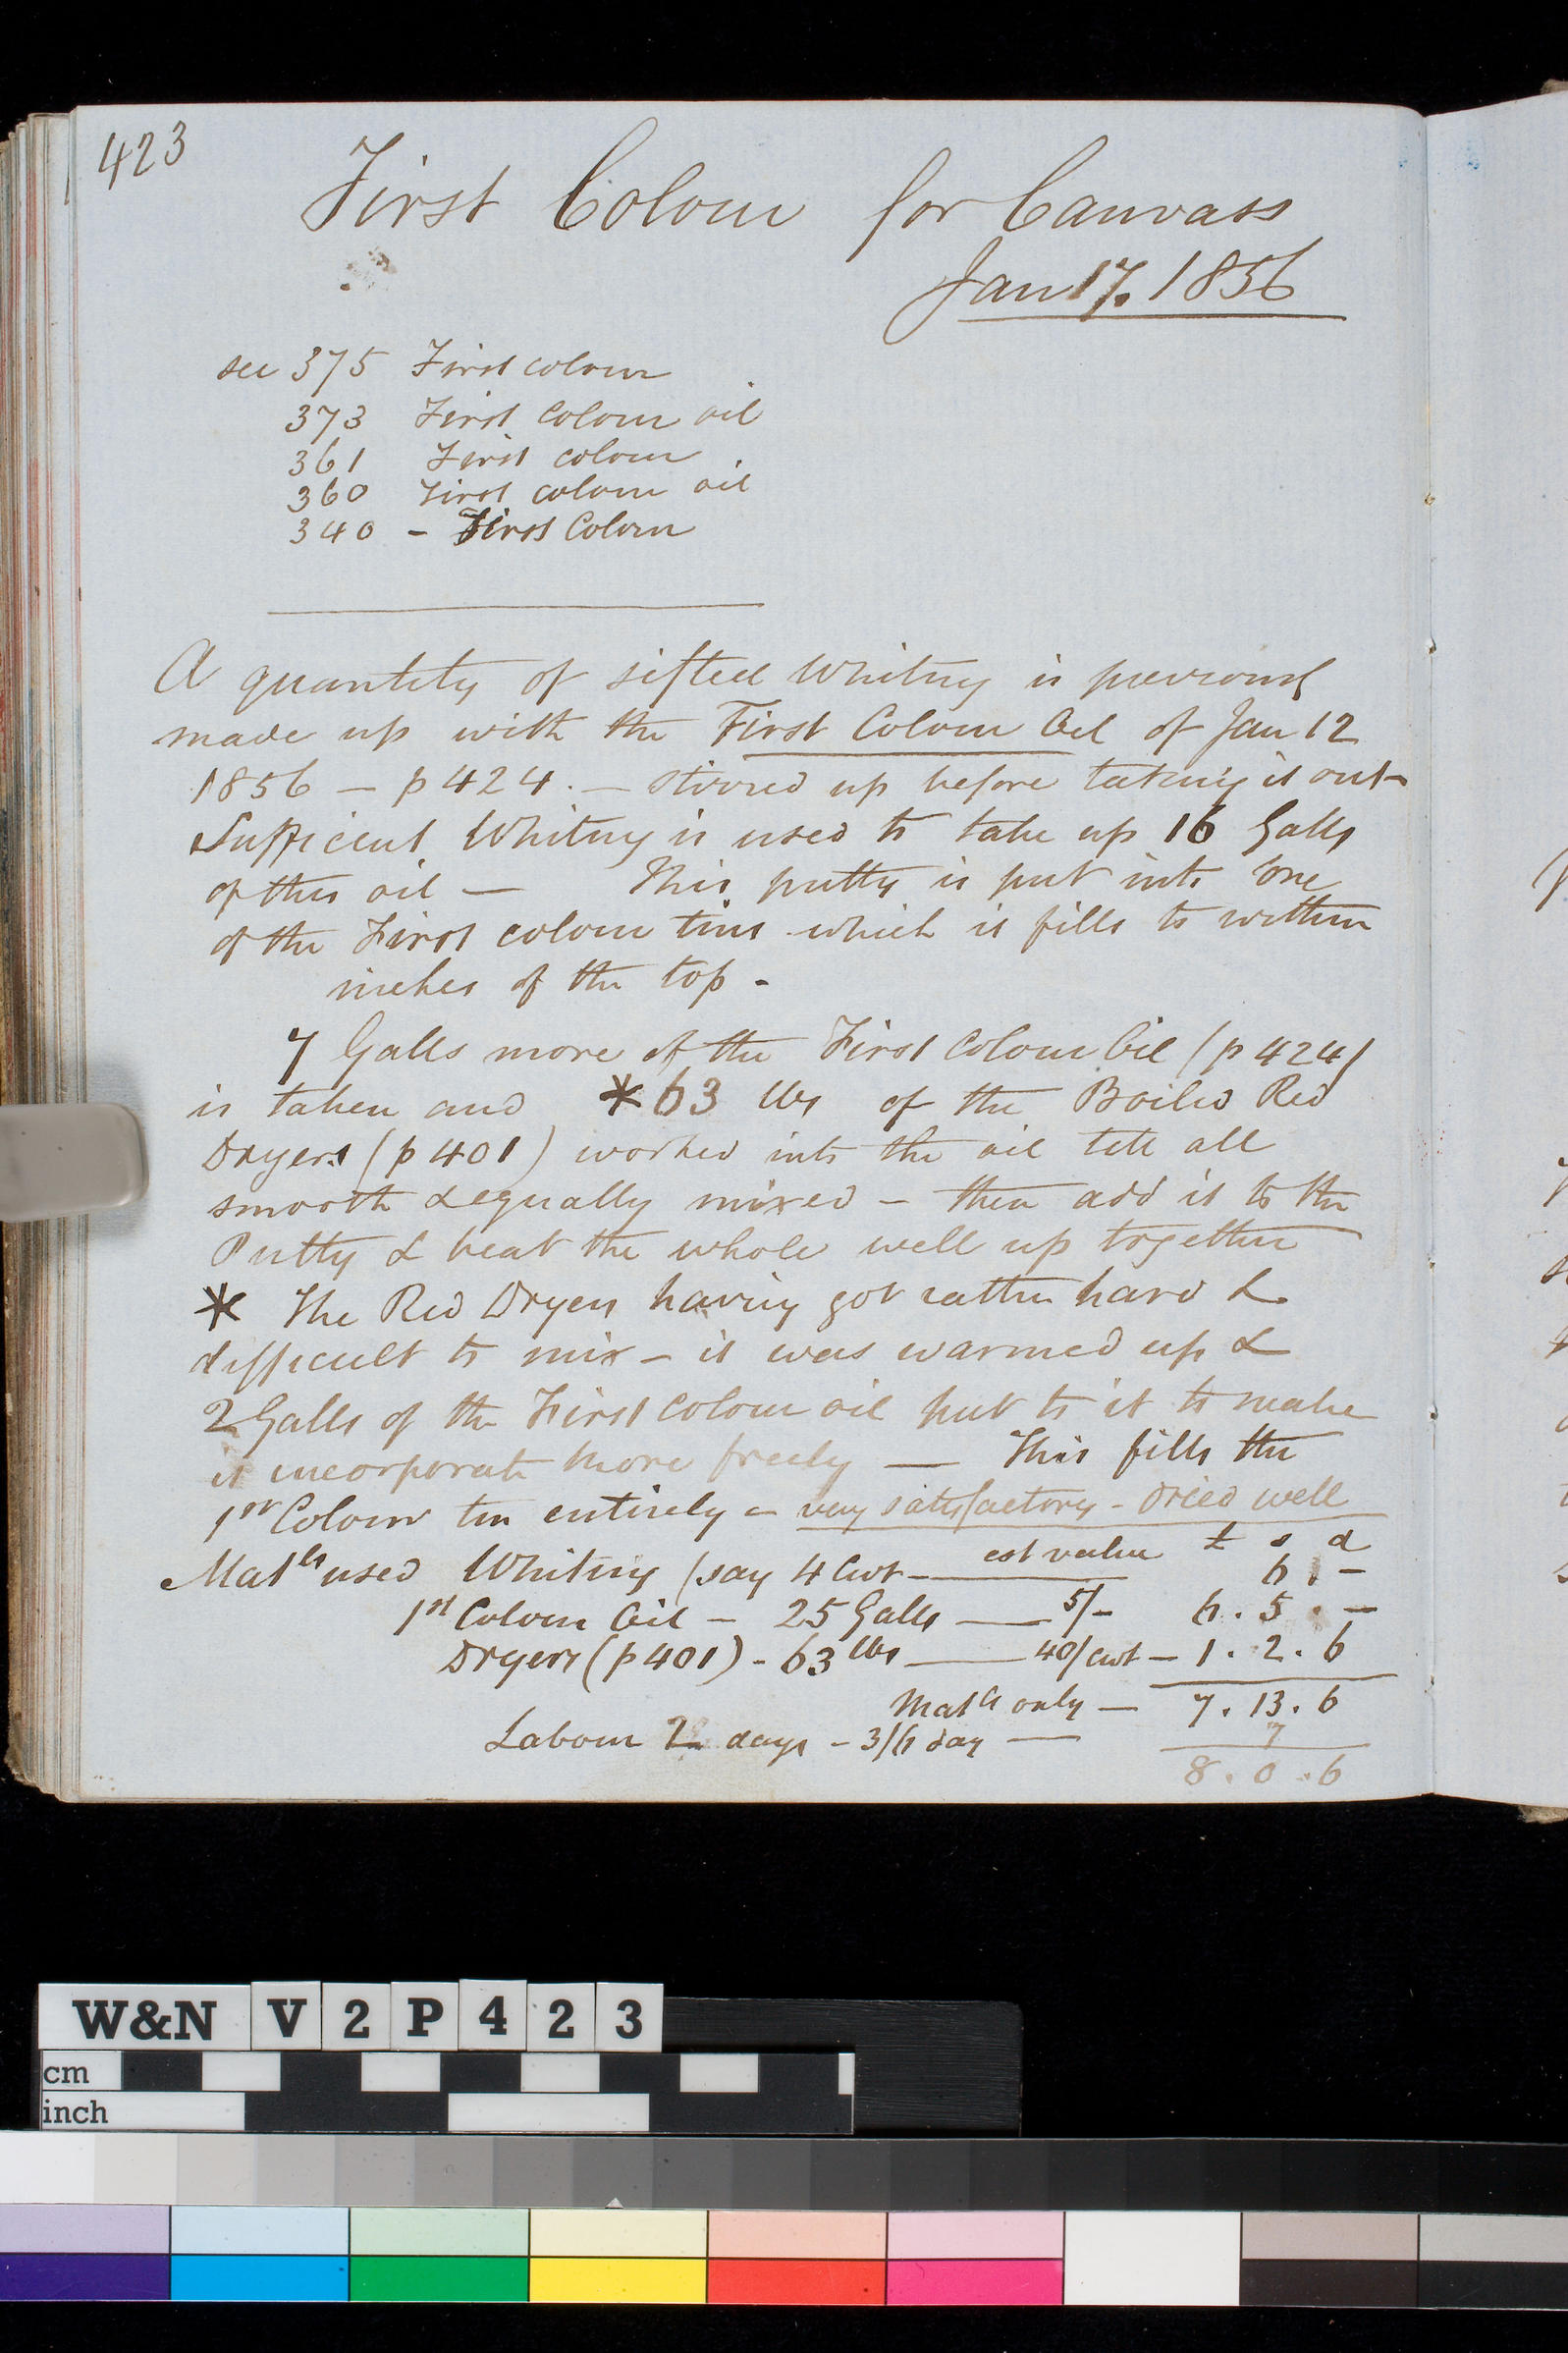 423
First Colour for Canvass
Jan 17. 1856
see 375 First colour
373 First Colour oil
361 First colour
360 First colour oil
340 - First Colour
A quantity of sifted Whiting is previously
made up with the First Colour Oil of Jan 12
1856 — p 424. — stirred up before taking it out —
Sufficient Whiting is used to take up 16 Galls
of this oil — This putty is put into one
of the First colour tins which it fills to within
inches of the top -
7 Galls more of the First Colour Oil (p 424)
is taken and * 63 lbs of the Boiled Red
Dryers (p 401) worked into the oil till all
smooth & equally mixed — then add it to the
Putty & beat the whole well up together
* The Red Dryers having got rather hard &
difficult to mix — it was warmed up &
2 Galls of the First colour oil put to it to make
it incorporate more freely — This fills the
1st Colour tin entirely — very satisfactory - dried well
Matls used Whiting (say 4 Cwt — est value £ s d
6 -
1st Colour Oil — 25 Galls — 5/- 6 . 5 . —
Dryers (p 401) - 63 lbs — 40/cwt — 1 . 2 . 6
Matls only — 7 . 13 . 6
Labour 2 days - 3/6 day — 7
8 . 0 . 6
W&N V 2 P 4 2 3
cm
inch